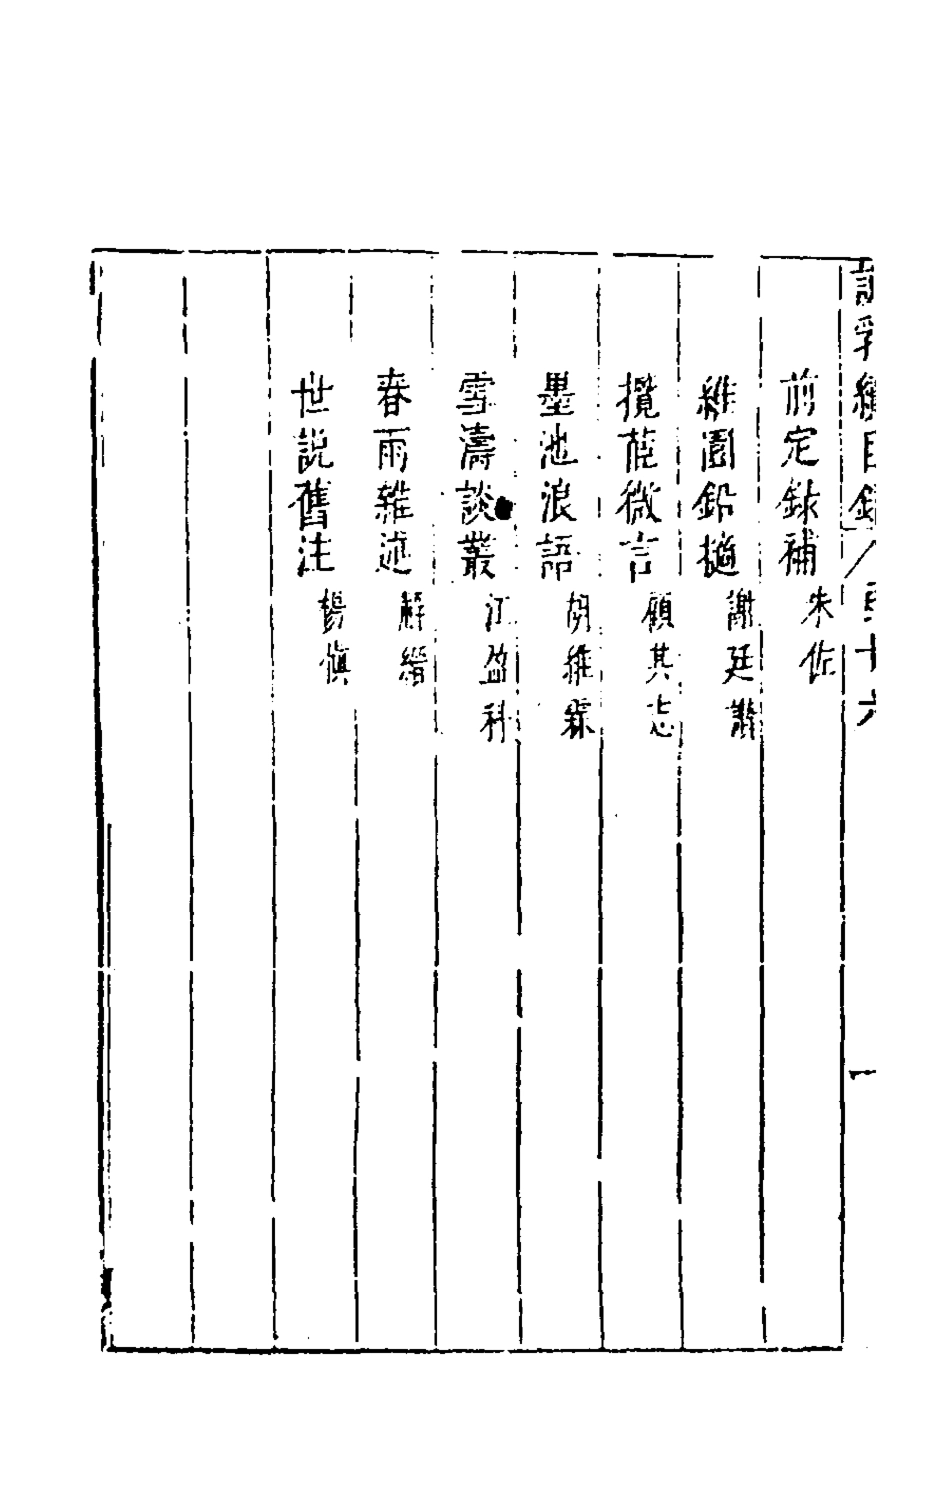 說郛續目錄 弓十六
一
前定錄補 朱佐
維園鉛擿 謝廷讚
攬茝微言 顧其志
墨池浪語 胡維霖
雪濤談叢 江盈科
春雨雜述 解縉
世説舊注 楊慎